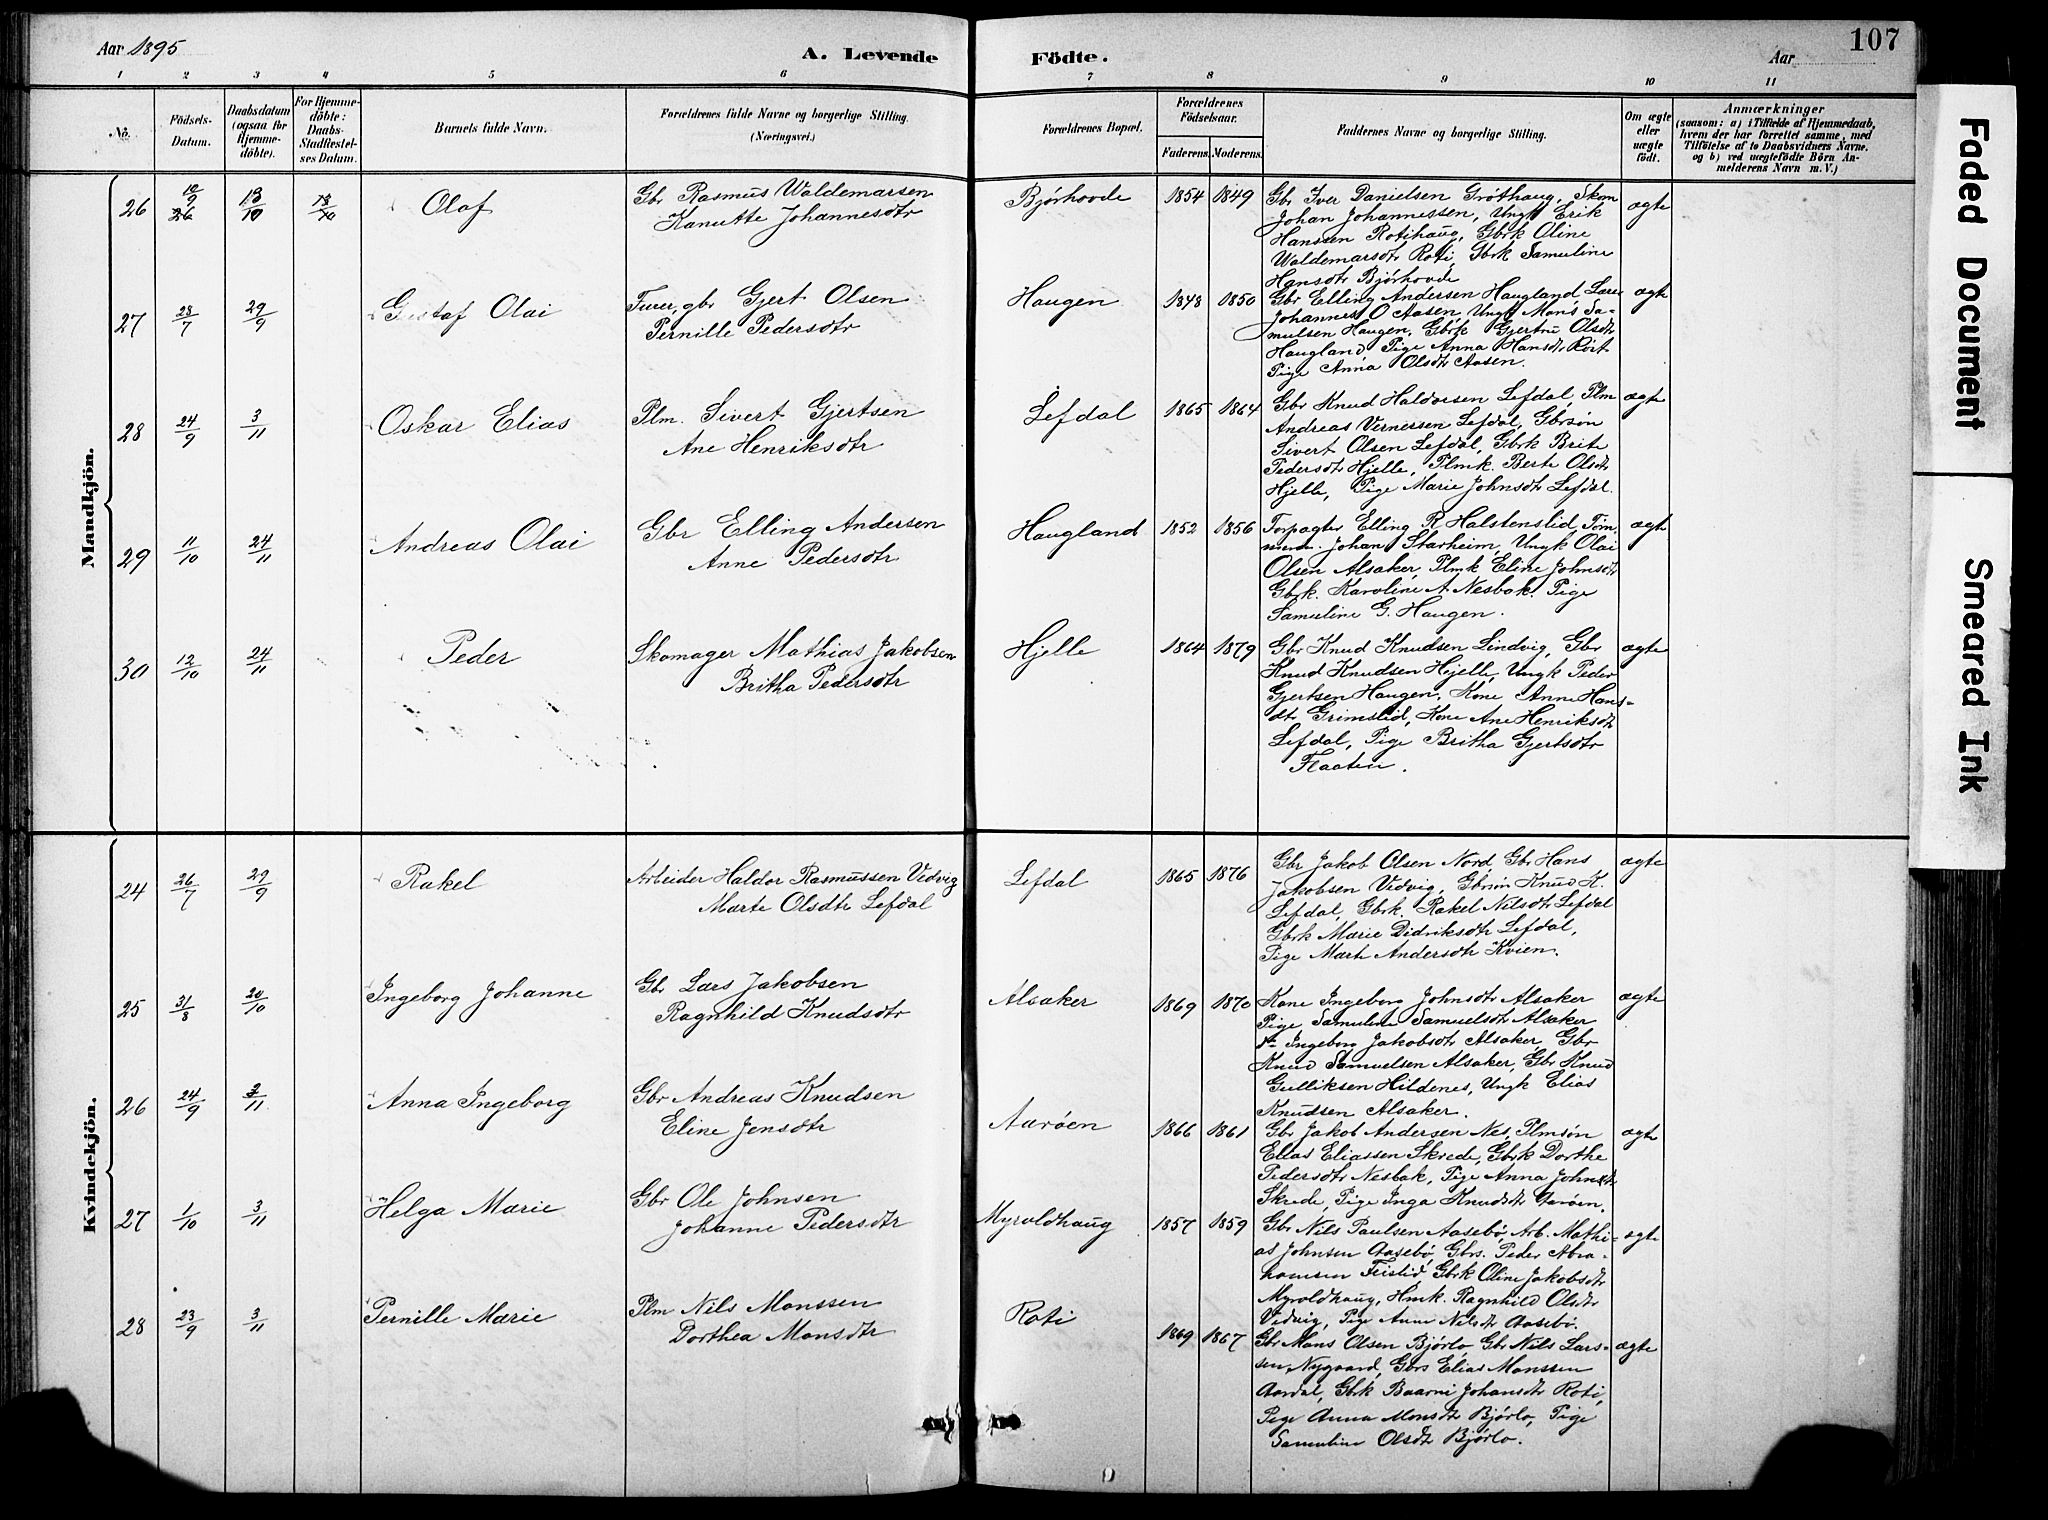 Aar 1895
A. Levende Födte.
Aar
107
1 2 3 4 5 6 7 8 9 10 11
No.
Födsels-Datum.
Daabsdatum (ogsaa for Hjemme-döbte).
For Hjemme-döbte: Daabs-Stadfæstel-ses Datum.
Barnets fulde Navn.
Forældrenes fulde Navne og borgerlige Stilling. (Næringsvei.)
Forældrenes Bopæl.
Forældrenes Födselsaar.
Faderens. Moderens.
Faddernes Navne og borgerlige Stilling.
Om ægte eller uægte födt.
Anmærkninger
(saasom: a) i Tilfælde af Hjemmedaab,
hvem der har forrettet samme, med
Tilföielse af to Daabsvidners Navne,
og b) ved uægtefödte Börn An-
melderens Navn m. V.)
Mandkjön.
26 10/9 13/10 13/10 Olaf
Gbr Rasmus Waldemarsen
Kanutte Johannesdtr
Bjørhovde 1854 1849
Gbr Iver Danielsen Grøthaug, Skom
Johan Johannessen, Ungk Erik
Hansen Rotihaug, Gbrk Oline
Waldemarsdtr Roti, Gbrk Samuline
Hansdtr Bjørhovde
ægte
27 28/7 29/9 Gustaf Olai
Furer, gbr Gjert Olsen
Pernille Pedersdtr
Haugen 1848 1850
Gbr Elling Andersen Haugland, Lærer
Johannes O Aasen, Ungk Mons Sa-
muelsen Haugen, Gbrk Gjertru Olsdt
Haugland, Pige Anna Hansdtr Røit
Pige Anna Olsdtr Aasen.
ægte
28 24/9 3/11 Oskar Elias
Plm. Sivert Gjertsen
Ane Henriksdtr
Lefdal 1865 1864
Gbr Knud Haldorsen Lefdal, Plm
Andreas Vernersen Lefdal, Gbrsøn
Sivert Olsen Lefdal, Gbrk Brite
Pedersdtr Hjelle, Plmk. Berte Olsdt
Hjelle, Pige Marie Johnsdt Lefdal.
ægte
29 11/10 24/11 Andreas Olai
Gbr Elling Andersen
Anne Pedersdtr
Haugland 1852 1856
Forpagter Elling R Halstenslid, Tøm-
merm. Johan Starheim, Ungk Olai
Olsen Alsaker, Plmk Eline Johnsdt
Gbrk. Karoline A. Nesbak. Pige
Samuline G. Haugen.
ægte
30 12/10 24/11 Peder
Skomager Mathias Jakobsen
Britha Pedersdtr
Hjelle 1864 1879
Gbr Knud Knudsen Lindvig, Gbr
Knud Knudsen Hjelle, Ungk Peder
Gjertsen Haugen, Kone Anne Hans-
dtr Grimslid, Kone Ane Henriksdt
Lefdal, Pige Britha Gjertsdtr
Flaaten.
ægte
Kvindekjön.
24 26/7 29/9 Rakel
Arbeider Haldor Rasmussen Vedvig
Marte Olsdtr Lefdal
Lefdal 1865 1876
Gbr Jakob Olsen Nord Gbr Hans
Jakobsen Vedvig, Gbrsøn Knud K.
Lefdal, Gbrk. Rakel Nilsdtr Lefdal
Gbrk Marie Didriksdtr Lefdal,
Pige Mart Andersdtr Kvien.
ægte
25 31/8 20/10 Ingeborg Johanne
Gbr Lars Jakobsen
Ragnhild Knudsdtr
Alsaker 1869 1870
Kone Ingeborg Johnsdtr Alsaker
Pige Samuline Samuelsdtr Alsaker
Ingeborg Jakobsdtr Alsaker, Gbr
Knud Samuelsen Alsaker, Gbr Knud
Gulliksen Hildenes, Ungk Elias
Knudsen Alsaker.
ægte
26 24/9 3/11 Anna Ingeborg
Gbr Andreas Knudsen
Eline Jensdtr
Aarøen 1866 1861
Gbr Jakob Andersen Nes, Plmsøn
Elias Eliassen Skrede, Gbrk Dorthe
Pedersdtr Nesbak, Pige Anna Johnsdt
Skrede, Pige Inga Knudsdtr Aarøen.
ægte
27 1/10 3/11 Helga Marie
Gbr Ole Johnsen
Johanne Pedersdtr
Myroldhaug 1857 1859
Gbr Nils Paulsen Aasebø, Arb. Mathi-
as Johnsen Aasebø, Gbrs. Peder Abra-
hamsen Feistid, Gbrk Oline Jakobsdt
Myroldhaug, Hmk. Ragnhild Olsdtr
Vedvig, Pige Anne Nilsdtr Aasebø.
ægte
28 23/9 3/11 Pernille Marie
Plm Nils Monssen
Dorthea Monsdtr
Roti 1869 1867
Gbr Mons Olsen Bjørlo, Gbr Nils Lars-
sen Nygaard, Gbrs Elias Monssen
Aardal, Gbrk Baarni Johansdtr Roti,
Pige Anna Monsdt Bjørlo, Pige
Samuline Olsdt Bjørlo.
ægte
Faded Document
Smeared Ink